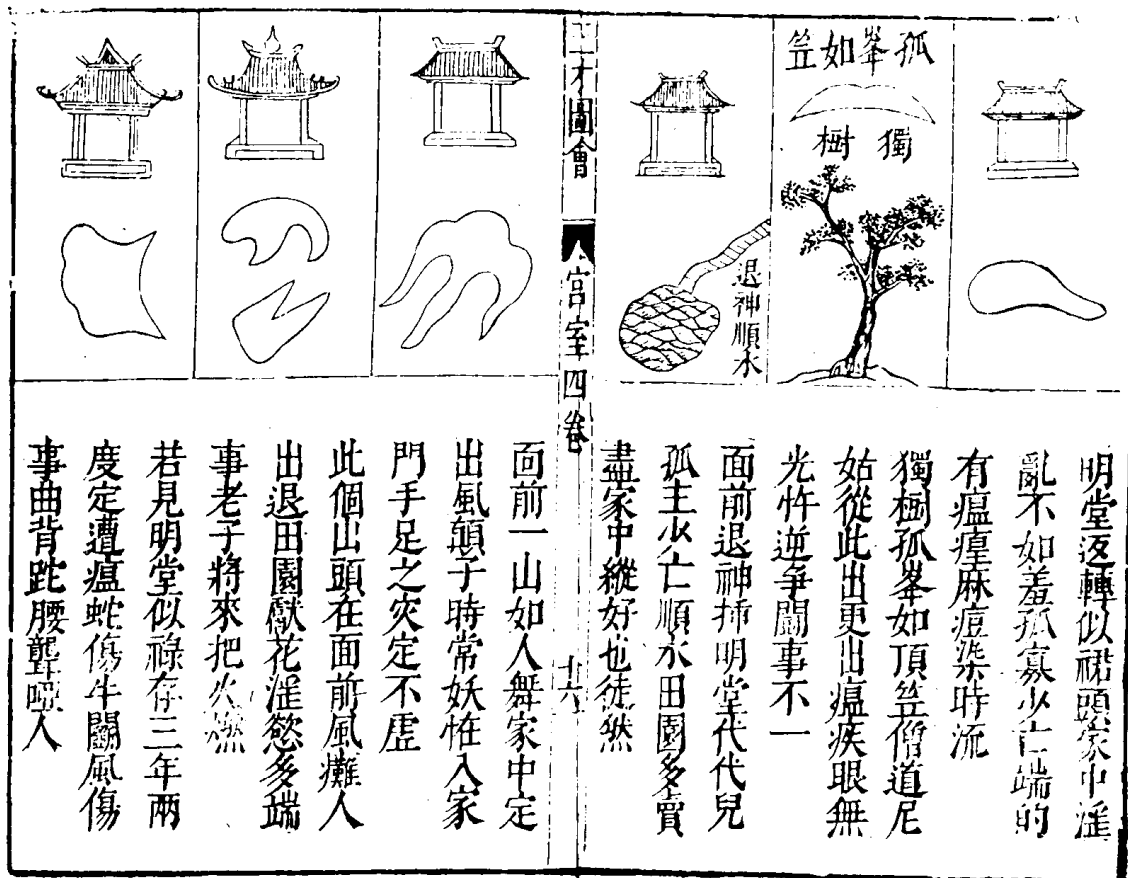 孤峯如笠
獨樹
退神順水
明堂返轉似裙頭家中滛
亂不如羞孤寡少亡端的
有瘟㾮麻痘染時流
獨樹孤峯如頂笠僧道尼
姑從此出更出瘟疾眼無
光忤逆爭鬪事不一
面前退神揷明堂代代兒
孤主少亡順水田園多賣
盡家中縱好也徒然
三才圖會
宮室四卷
十六
面前一山如人舞家中定
出風顛子時常妖怪入家
門手足之灾定不虛
此個出頭在面前風癱人
出退田園獻花滛慾多端
事老子將來把火燃
若見明堂似祿存三年兩
度定遭瘟蛇傷牛鬭風傷
事曲背跎腰聾啞人